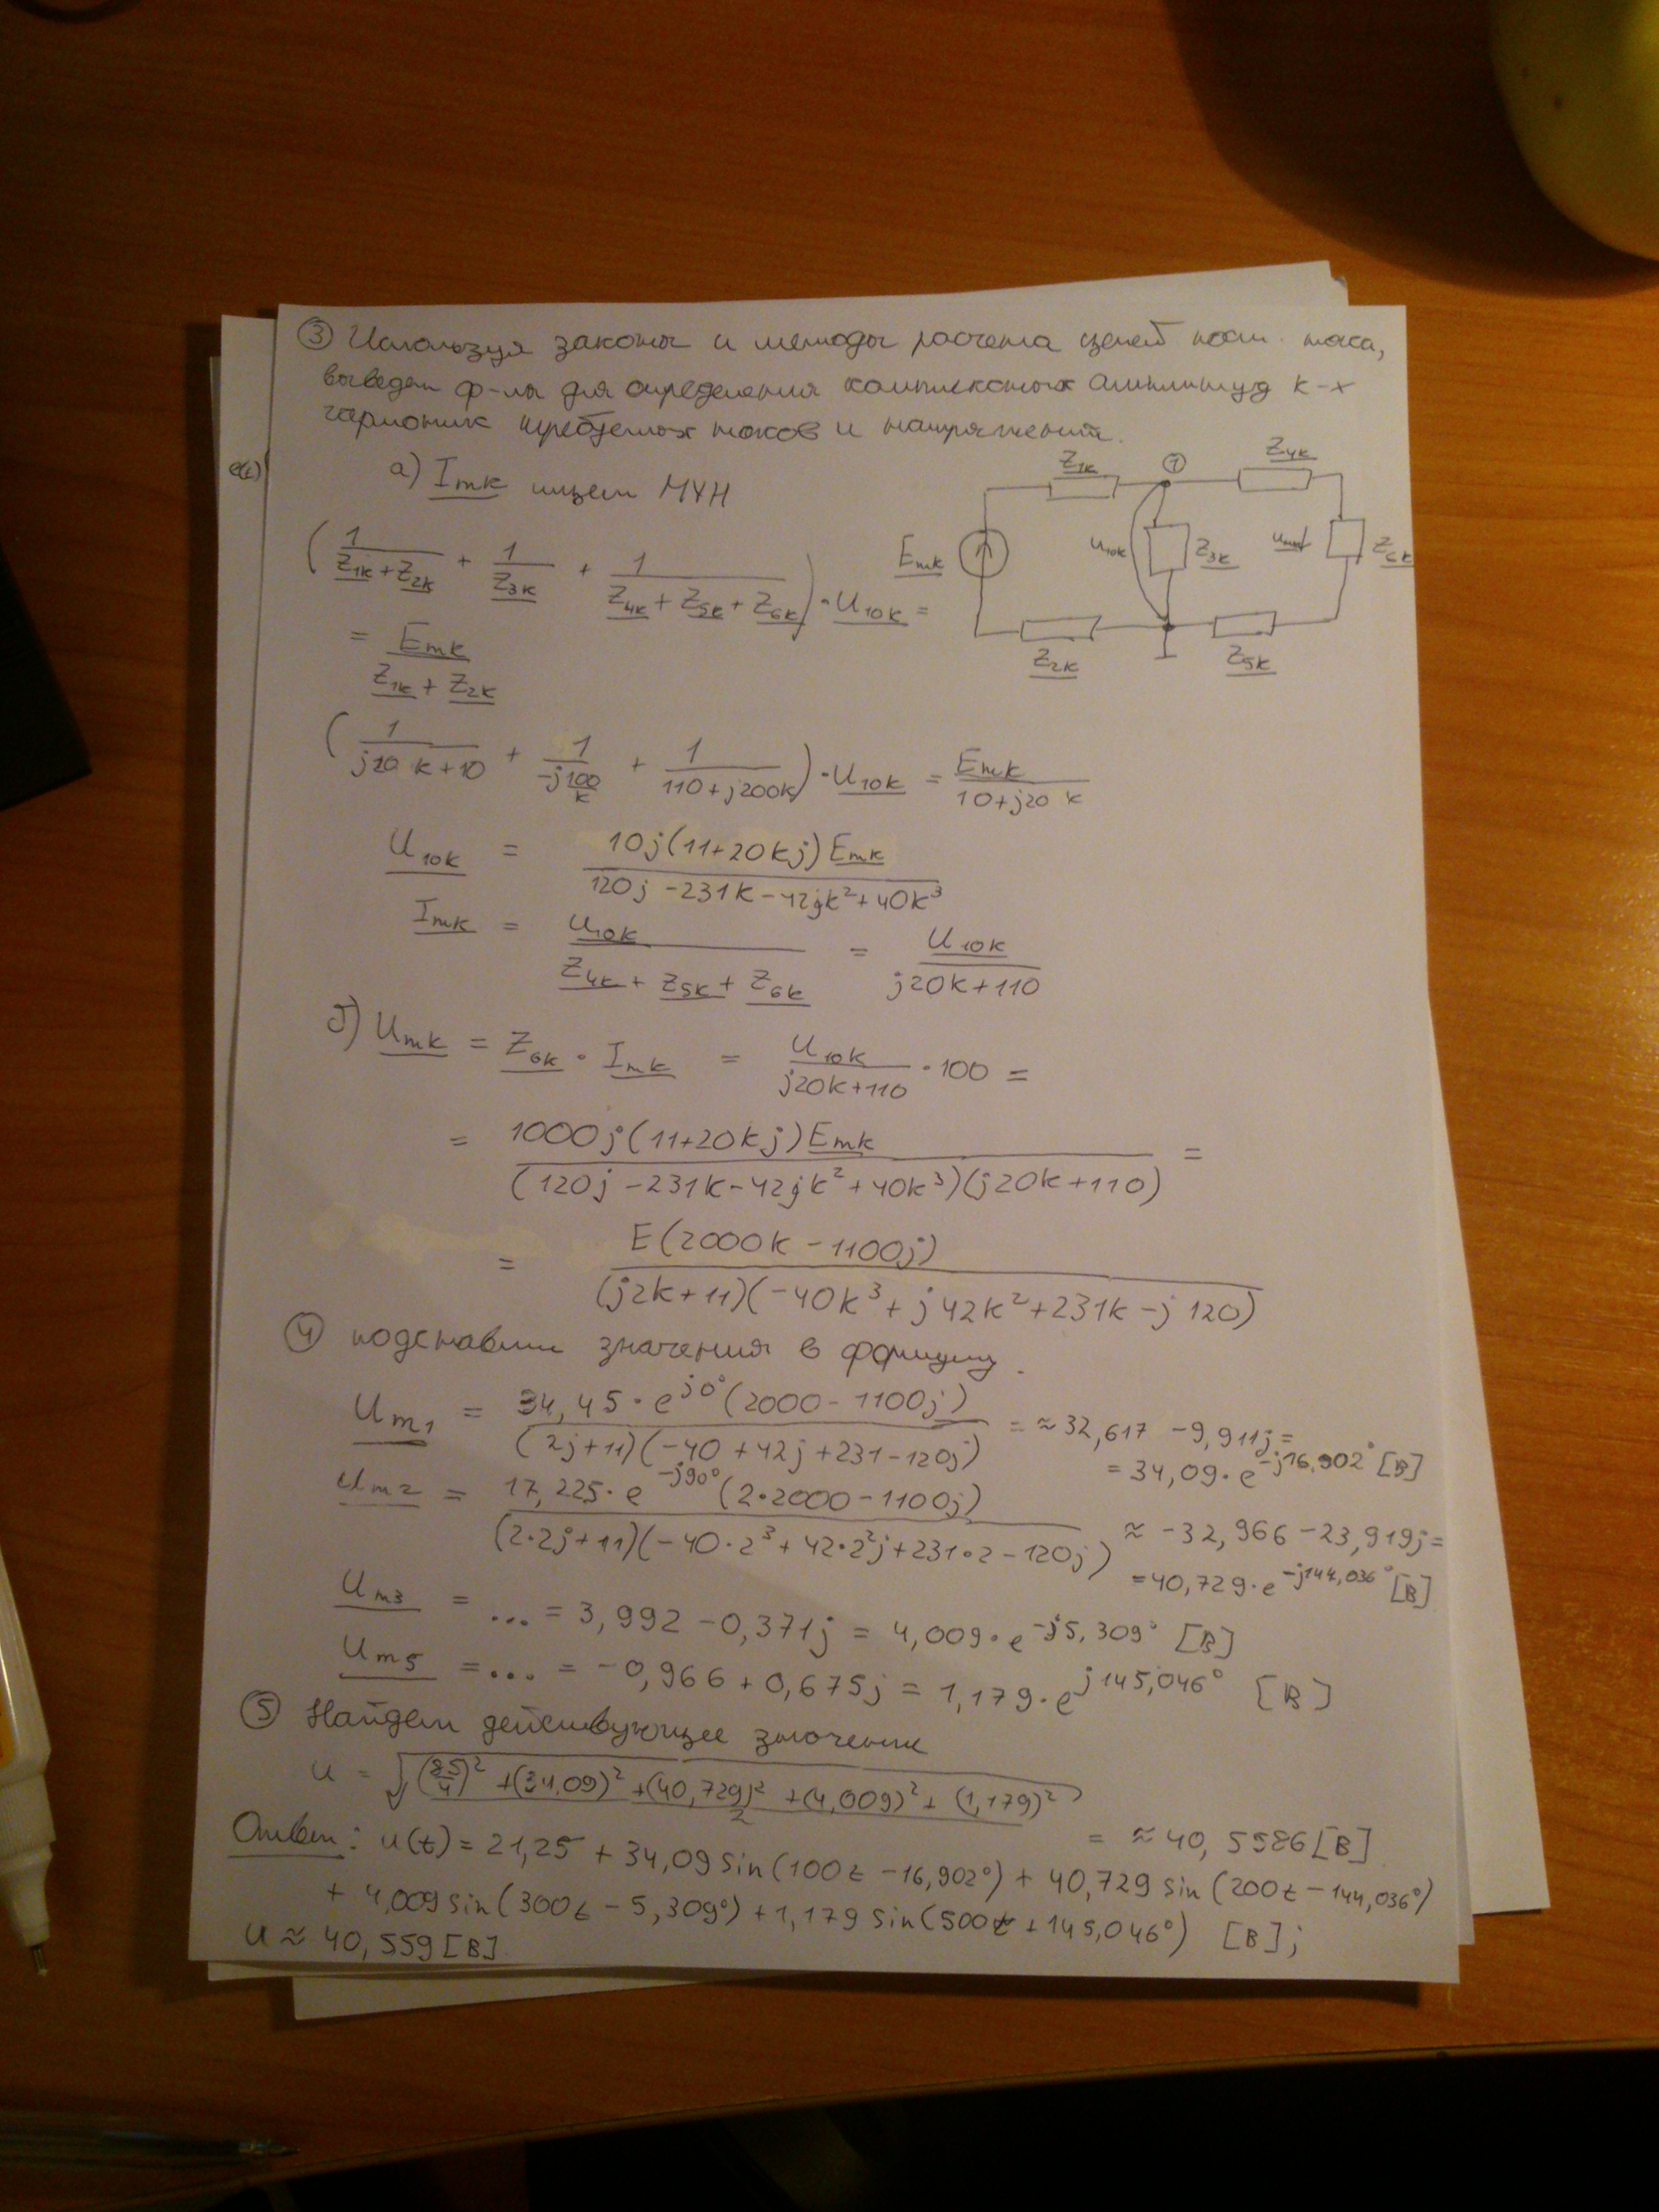 ③ Используя законы и методы расчета цепей пост. тока,
выведем ф-лы для определения комплексных амплитуд k-х
гармоник требуемых токов и напряжений.
e(t)
а) I_mk ищем МУН
Z_1k ① Z_4k
E_mk U_10k Z_3k Z_6k
Z_2k Z_5k
(1/(Z_1k + Z_2k) + 1/Z_3k + 1/(Z_4k + Z_5k + Z_6k)) · U_10k =
= E_mk/(Z_1k + Z_2k)
(1/(j20 k + 10) + 1/(-j100/k) + 1/(110 + j200k)) · U_10k = E_mk/(10 + j20 k)
U_10k = 10j(11+20kj) E_mk/(120j - 231k - 42jk² + 40k³)
I_mk = U_10k/(Z_4k + Z_5k + Z_6k) = U_10k/(j20k + 110)
б) U_mk = Z_6k · I_mk = U_10k/(j20k+110) · 100 =
= 1000j(11+20kj) E_mk/((120j - 231k - 42jk² + 40k³)(j20k + 110)) =
= E(2000k - 1100j)/((j2k+11)(-40k³ + j42k² + 231k - j120))
④ подставим значения в формулу.
U_m1 = 34,45 · e^j0° (2000 - 1100j)/((2j+11)(-40 + 42j + 231 - 120j)) = ≈ 32,617 - 9,911j =
= 34,09 · e^-j16,902° [В]
U_m2 = 17,225 · e^-j90° (2·2000 - 1100j)/((2·2j+11)(-40·2³ + 42·2²j + 231·2 - 120j)) ≈ -32,966 - 23,919j =
= 40,729 · e^-j144,036° [В]
U_m3 = ... = 3,992 - 0,371j = 4,009 · e^-j5,309° [В]
U_m5 = ... = -0,966 + 0,675j = 1,179 · e^j145,046° [В]
⑤ Найдем действующее значение
U = √((85/4)² + ((34,09)² + (40,729)² + (4,009)² + (1,179)²)/2)
= ≈ 40,5586 [В]
Ответ: u(t) = 21,25 + 34,09 sin(100t - 16,902°) + 40,729 sin(200t - 144,036°)
+ 4,009 sin(300t - 5,309°) + 1,179 sin(500t + 145,046°) [В];
U ≈ 40,559 [В]